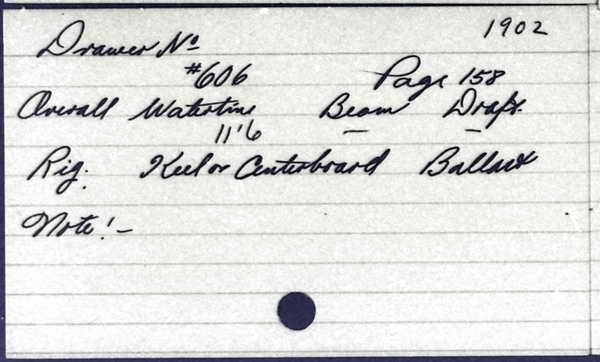 1902
Drawer No
#606 Page 158
Overall Waterline Beam Draft.
11'6 — —
Rig. Keel or Centerboard Ballast
Note!-